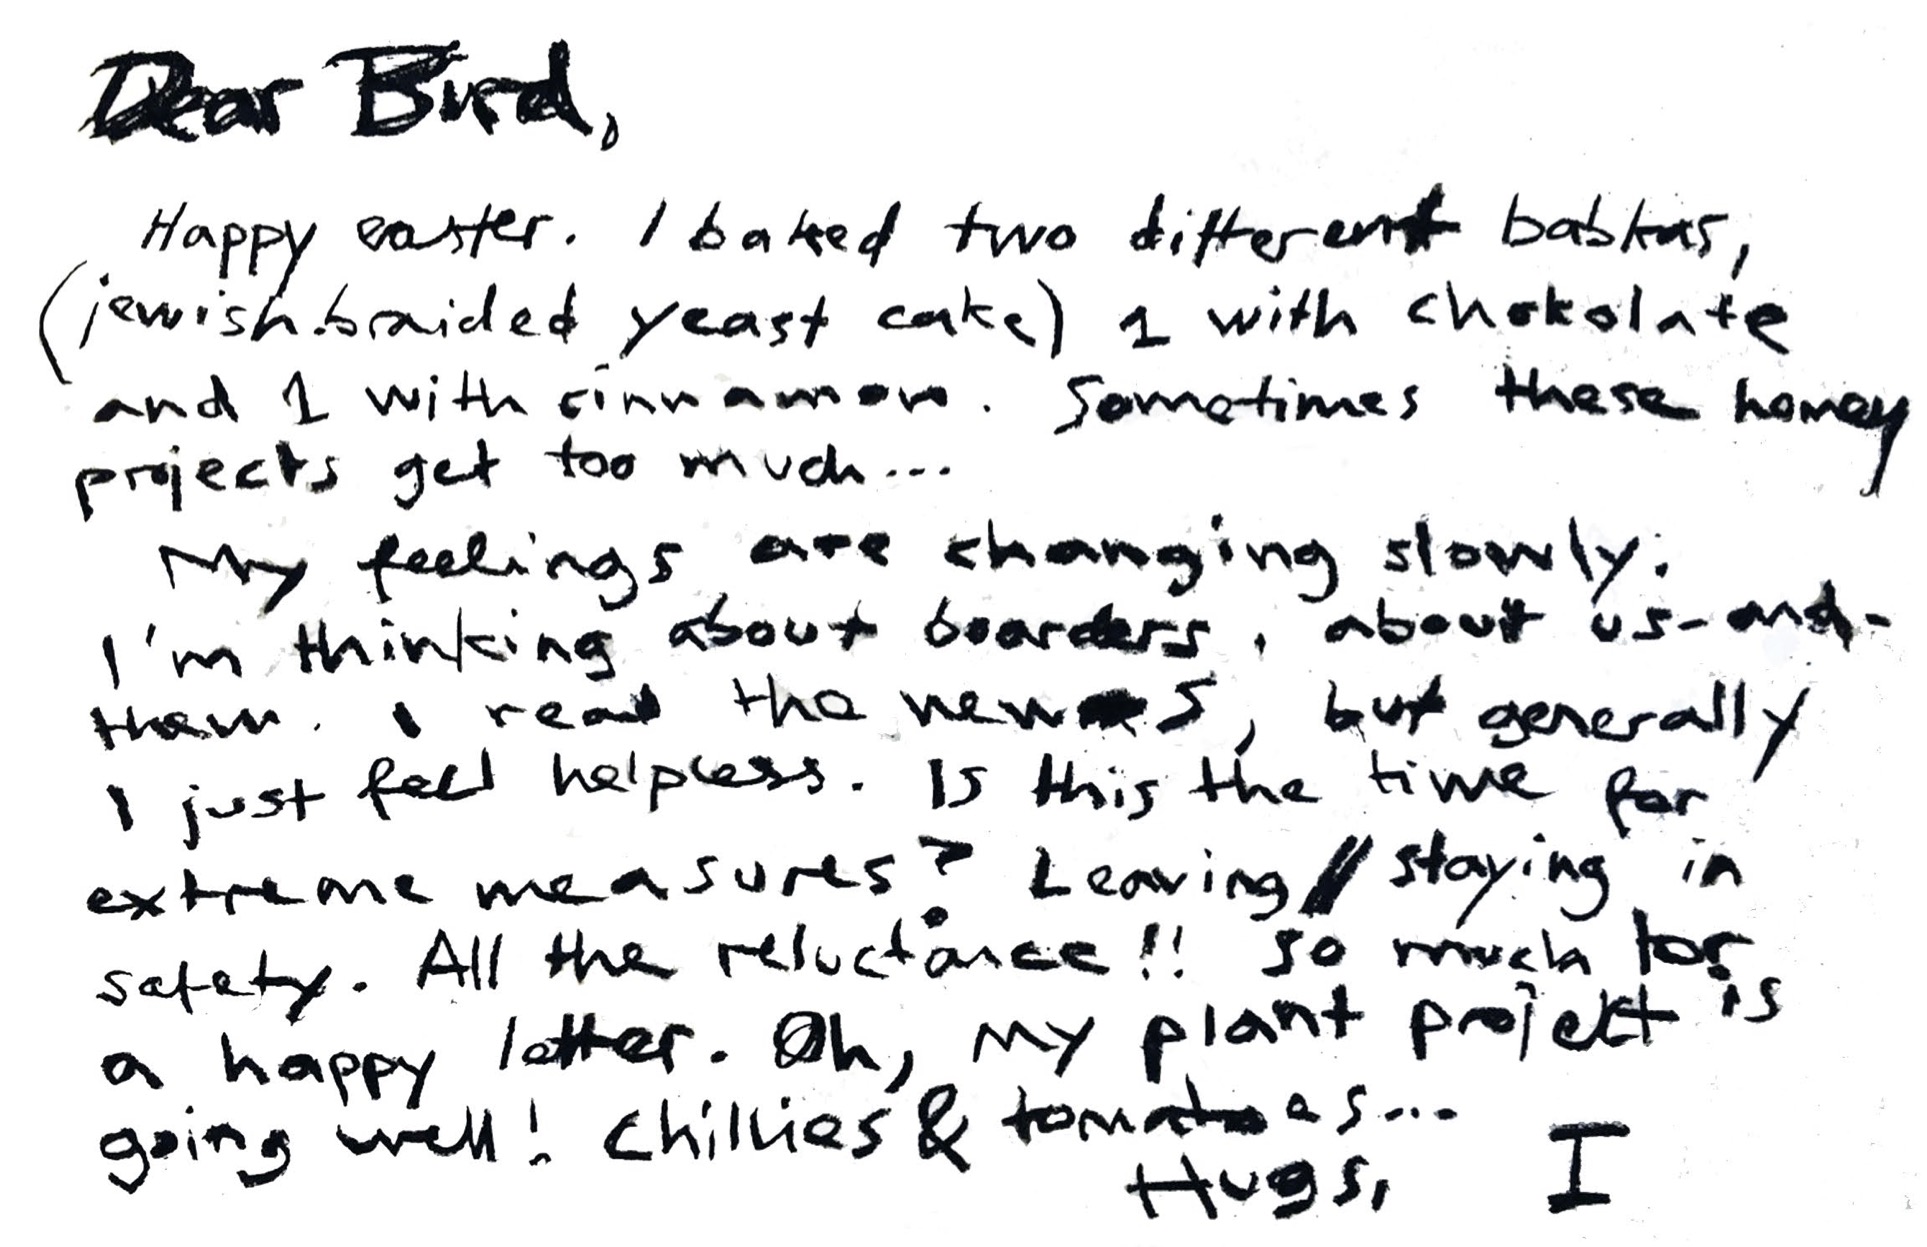 Dear Burd,
Happy easter. I baked two different babkas,
(jewish braided yeast cake) 1 with chokolate
and 1 with cinnamon. Sometimes these homey
projects get too much...
My feelings are changing slowly.
I'm thinking about boarders, about us-and-
them. I read the news, but generally
I just feel helpless. Is this the time for
extreme measures? Leaving // staying in
safety. All the reluctance!! So much for
a happy letter. Oh, my plant projekt is
going well! Chillies & tomatoes...
Hugs, I